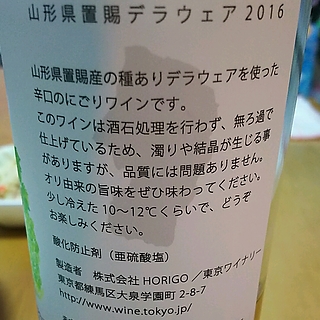 山形県置賜デラウェア2016
山形県置賜産の種ありデラウェアを使った
辛口のにごりワインです。
このワインは酒石処理を行わず、無ろ過で
仕上げているため、濁りや結晶が生じる事
がありますが、品質には問題ありません。
オリ由来の旨味をぜひ味わってください。
少し冷えた10〜12℃くらいで、どうぞ
お楽しみください。
酸化防止剤（亜硫酸塩）
製造者 株式会社HORIGO／東京ワイナリー
東京都練馬区大泉学園町2-8-7
http://www.wine.tokyo.jp/